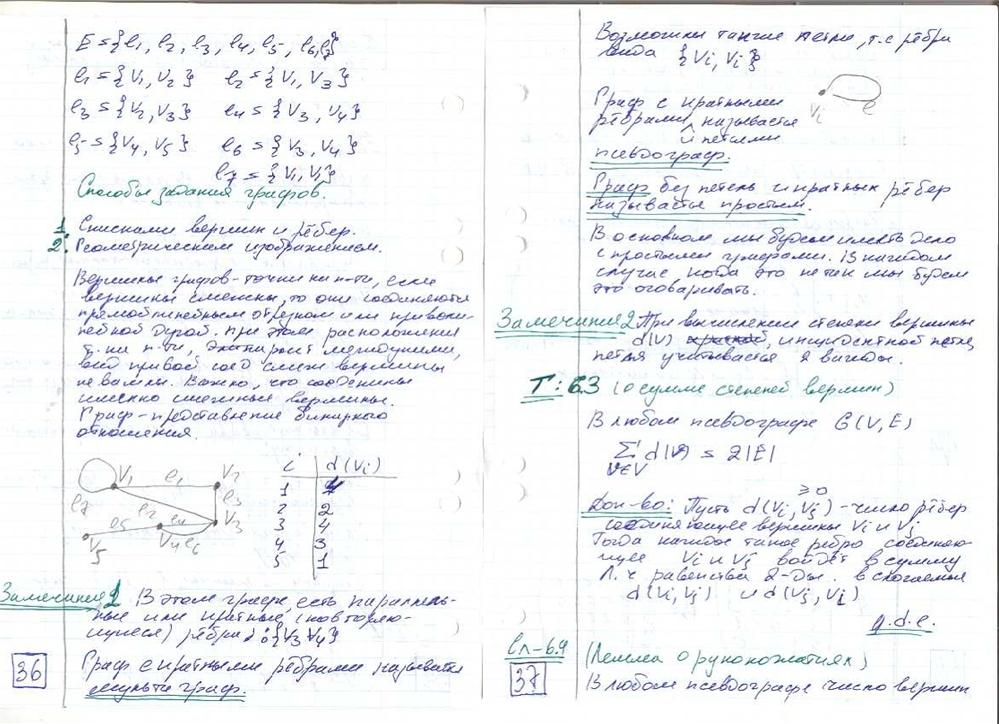 E = {e1, e2, e3, e4, e5, e6, e7}
e1 = {V1, V2} e2 = {V1, V3}
e3 = {V2, V3} e4 = {V3, V4}
e5 = {V4, V5} e6 = {V3, V4}
e7 = {V1, V1}
Способы задания графов.
1. Списками вершин и рёбер.
2. Геометрическим изображением.
Вершины графов - точки на п-ти, если
вершины смежны, то они соединяются
прямолинейным отрезком или криволи-
нейной дугой. При этом расположения
т. на п-ти, между ними,
вид кривой соед смеж вершины
не важны. Важно, что соединены
именно смежные вершины.
Граф - представление бинарного
отношения.
V1 e1 V2
e7 e2 e3
e5 e4 V3
V5 V4 e6
i d(Vi)
1 4
2 2
3 4
4 3
5 1
Замечание 1 В этом графе есть параллель-
ные или кратные (повторяю-
щиеся) рёбра: {V3 V4}
Граф с кратными рёбрами называется
мультиграф.
36
Возможны также петли, т.е рёбра
вида {Vi, Vi}
Vi e
Граф с кратными
рёбрами и петлями называется
псевдограф.
Граф без петель и кратных рёбер
называется простым.
В основном мы будем иметь дело
с простыми графами. В каждом
случае, когда это не так мы будем
это оговаривать.
Замечание 2 При вычислении степени вершины
d(V), инцидентной петле,
петля учитывается дважды.
Т: 6.3 (о сумме степеней вершин)
В любом псевдографе G(V,E)
∑ d(V) = 2|E|
V∈V
Док-во: Пусть d(Vi, Vj) ≥ 0 - число рёбер
соединяющее вершины Vi и Vj
Тогда каждое такое ребро соединяю-
щее Vi и Vj войдёт в сумму
Л.ч равенства 2-ды: в слагаемые
d(Vi, Vj) и d(Vj, Vi)
q.d.e.
Сл-6.4 (Лемма о рукопожатиях)
37 В любом псевдографе число вершин